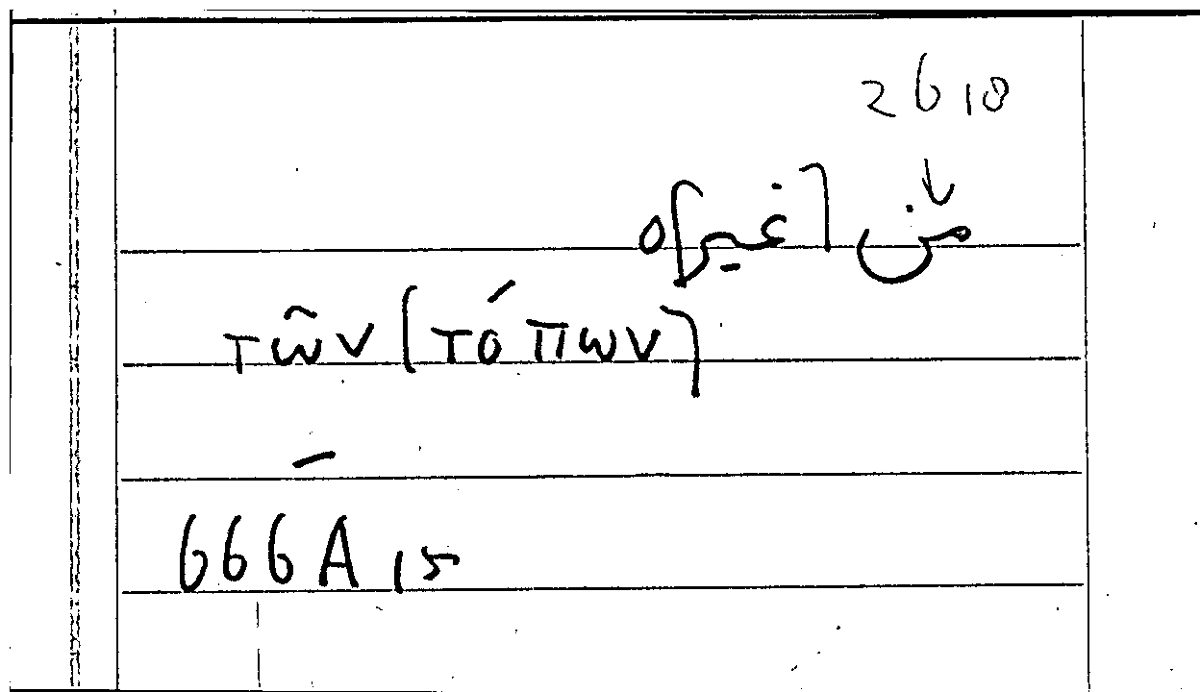 26 18
↓
من [غير]ه
τῶν [τόπων]
–
666A 15